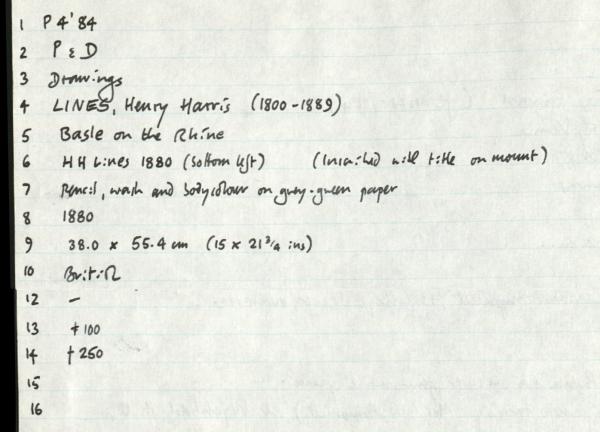 1 P 4'84
2 P & D
3 Drawings
4 LINES, Henry Harris (1800-1889)
5 Basle on the Rhine
6 HH Lines 1880 (bottom left) (Inscribed with title on mount)
7 Pencil, wash and bodycolour on grey-green paper
8 1880
9 38.0 x 55.4 cm (15 x 21 3/4 ins)
10 British
12 -
13 £100
14 £250
15
16